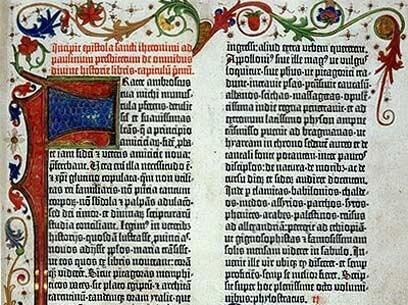 Incipit epistola sancti iheronimi ad
paulinum presbiterum de omnibus
divine historie libris. capitulū pͥmū.
Frater ambrosius
tua michi munuscu-
la pferens. detulit
sil̄ et suavissimas
lr̄as. q̄ a principio
amicicie. fidē pba-
te iam fidei et veteris amicicie nova
pferebant. Vera enī illa necessitudo ē.
et xp̄i glutino copulata. qm̄ non utili-
tas rei familiaris. nō pn̄tia tantum
corporū. nō sb̄dola et palpans adulacō.
sed dei timor. et divinarū scripturarū
studia conciliant. Legim⁹ in veterib⁹
historijs. quosdā lustrasse pvincias.
novos adijsse pplōs. maria trāsisse.
ut eos quos ex libris noverant: corā
q̄ȝ viderēt. Sicut pitagoras memphi-
ticos vates. sic plato egiptū et architā
tarentinū. eandemqȝ oram ytalie. que
ingressi: aliud extra urbem quererent.
Appolloni⁹ sive ille mag⁹ ut vulgus
loquitur. sive ph̄us ut pitagorici tra-
dunt. intravit psas. ptrāsivit caucasū.
albanos. scithas. massagetas. opulen-
tissima indie regna penetravit: et ad
extremum latissimo physon ampne
trāsmisso puenit ad bragmanas: ut
hyarcam in throno sedentē aureo et de
tantali fonte potantem. inter paucos
discipulos. de natura. de moribus ac de
cursu dierū et siderū audiret docentem.
Inde p elamitas. babilonios. chalde-
os. medos. assirios. parthos. syros.
phenices. arabes. palestinos. reversus
ad alexandriā: perrexit ad ethiopiā.
ut gignosophistas et famosissimam
solis mensam videret in sabulo. Inve-
nit ille vir ubiqȝ qd disceret: et semp
proficiens. semp se melior fieret. Scrip-
sit super hoc plenissime octo volumi-
nibus. phylostratus.